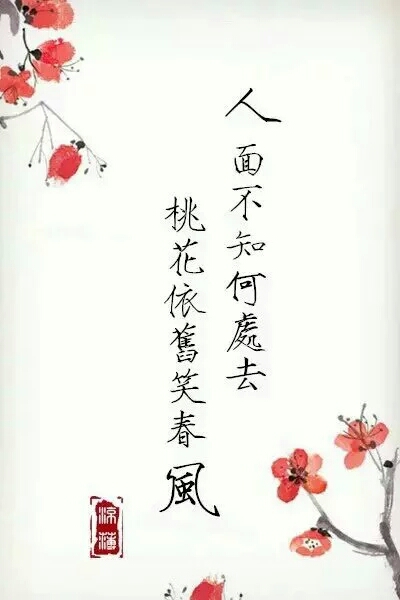 人面不知何處去
桃花依舊笑春風
凉薄